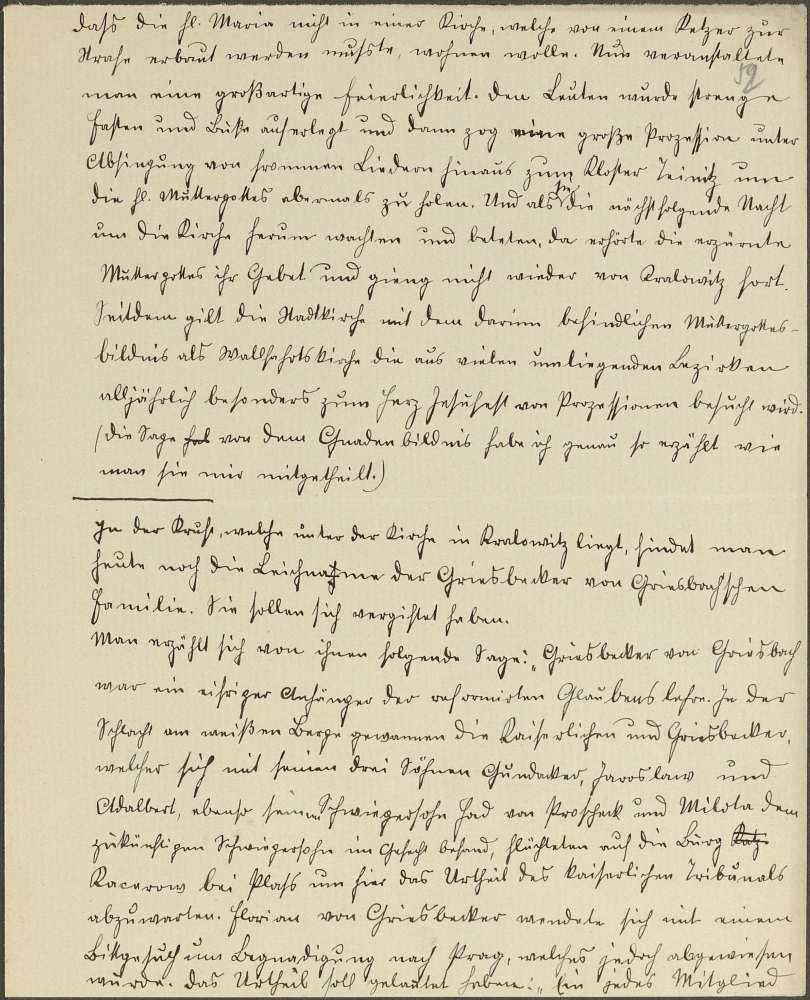 daß die hl. Maria nicht in einer Kirche, welche von einem Ketzer zur
Strafe erbaut werden mußte, wohnen wolle. Nun veranstaltete
man eine großartige Feierlichkeit. Den Leuten wurde strenge
Fasten und Buße auferlegt und dann zog eine große Prozession unter
Absingung von frommen Liedern hinaus zum Kloster Teinitz um
die hl. Muttergottes abermals zu holen. Und als sie die nächstfolgende Nacht
um die Kirche herum wachten und beteten, da erhörte die erzürnte
Muttergottes ihr Gebet und gieng nicht wieder von Kralowitz fort.
Seitdem gilt die Stadtkirche mit dem darinn befindlichen Muttergottes-
bildnis als Wallfahrtskirche die aus vielen umliegenden Bezirken
alljährlich besonders zum Herz Jesufest von Prozessionen besucht wird.
(die Sage hat von dem Gnadenbildnis habe ich genau so erzählt wie
man sie mir mitgetheilt.)
In der Kruft, welche unter der Kirche in Kralowitz liegt, findet man
heute noch die Leichname der Griesbecker von Griesbach'schen
Familie. Sie sollen sich vergiftet haben.
Man erzählt sich von ihnen folgende Sage: „Griesbecker von Griesbach
war ein eifriger Anhänger der reformirten Glaubenslehre. In der
Schlacht am weißen Berge gewannen die Kaiserlichen und Griesbecker,
welcher sich mit seinen drei Söhnen Gundacker, Jaroslaw und
Adalbert, ebenso seinem Schwiegersohn Had von Proscheck und Milota dem
zukünftigen Schwiegersohn im Gefecht befand, flüchteten auf die Burg
Kacerow bei Plass um hier das Urtheil des kaiserlichen Tribunals
abzuwarten. Florian von Griesbecker wendete sich mit einem
Bittgesuch um Begnadigung nach Prag, welches jedoch abgewiesen
wurde. Das Urtheil soll gelautet haben: „Ein jedes Mitglied